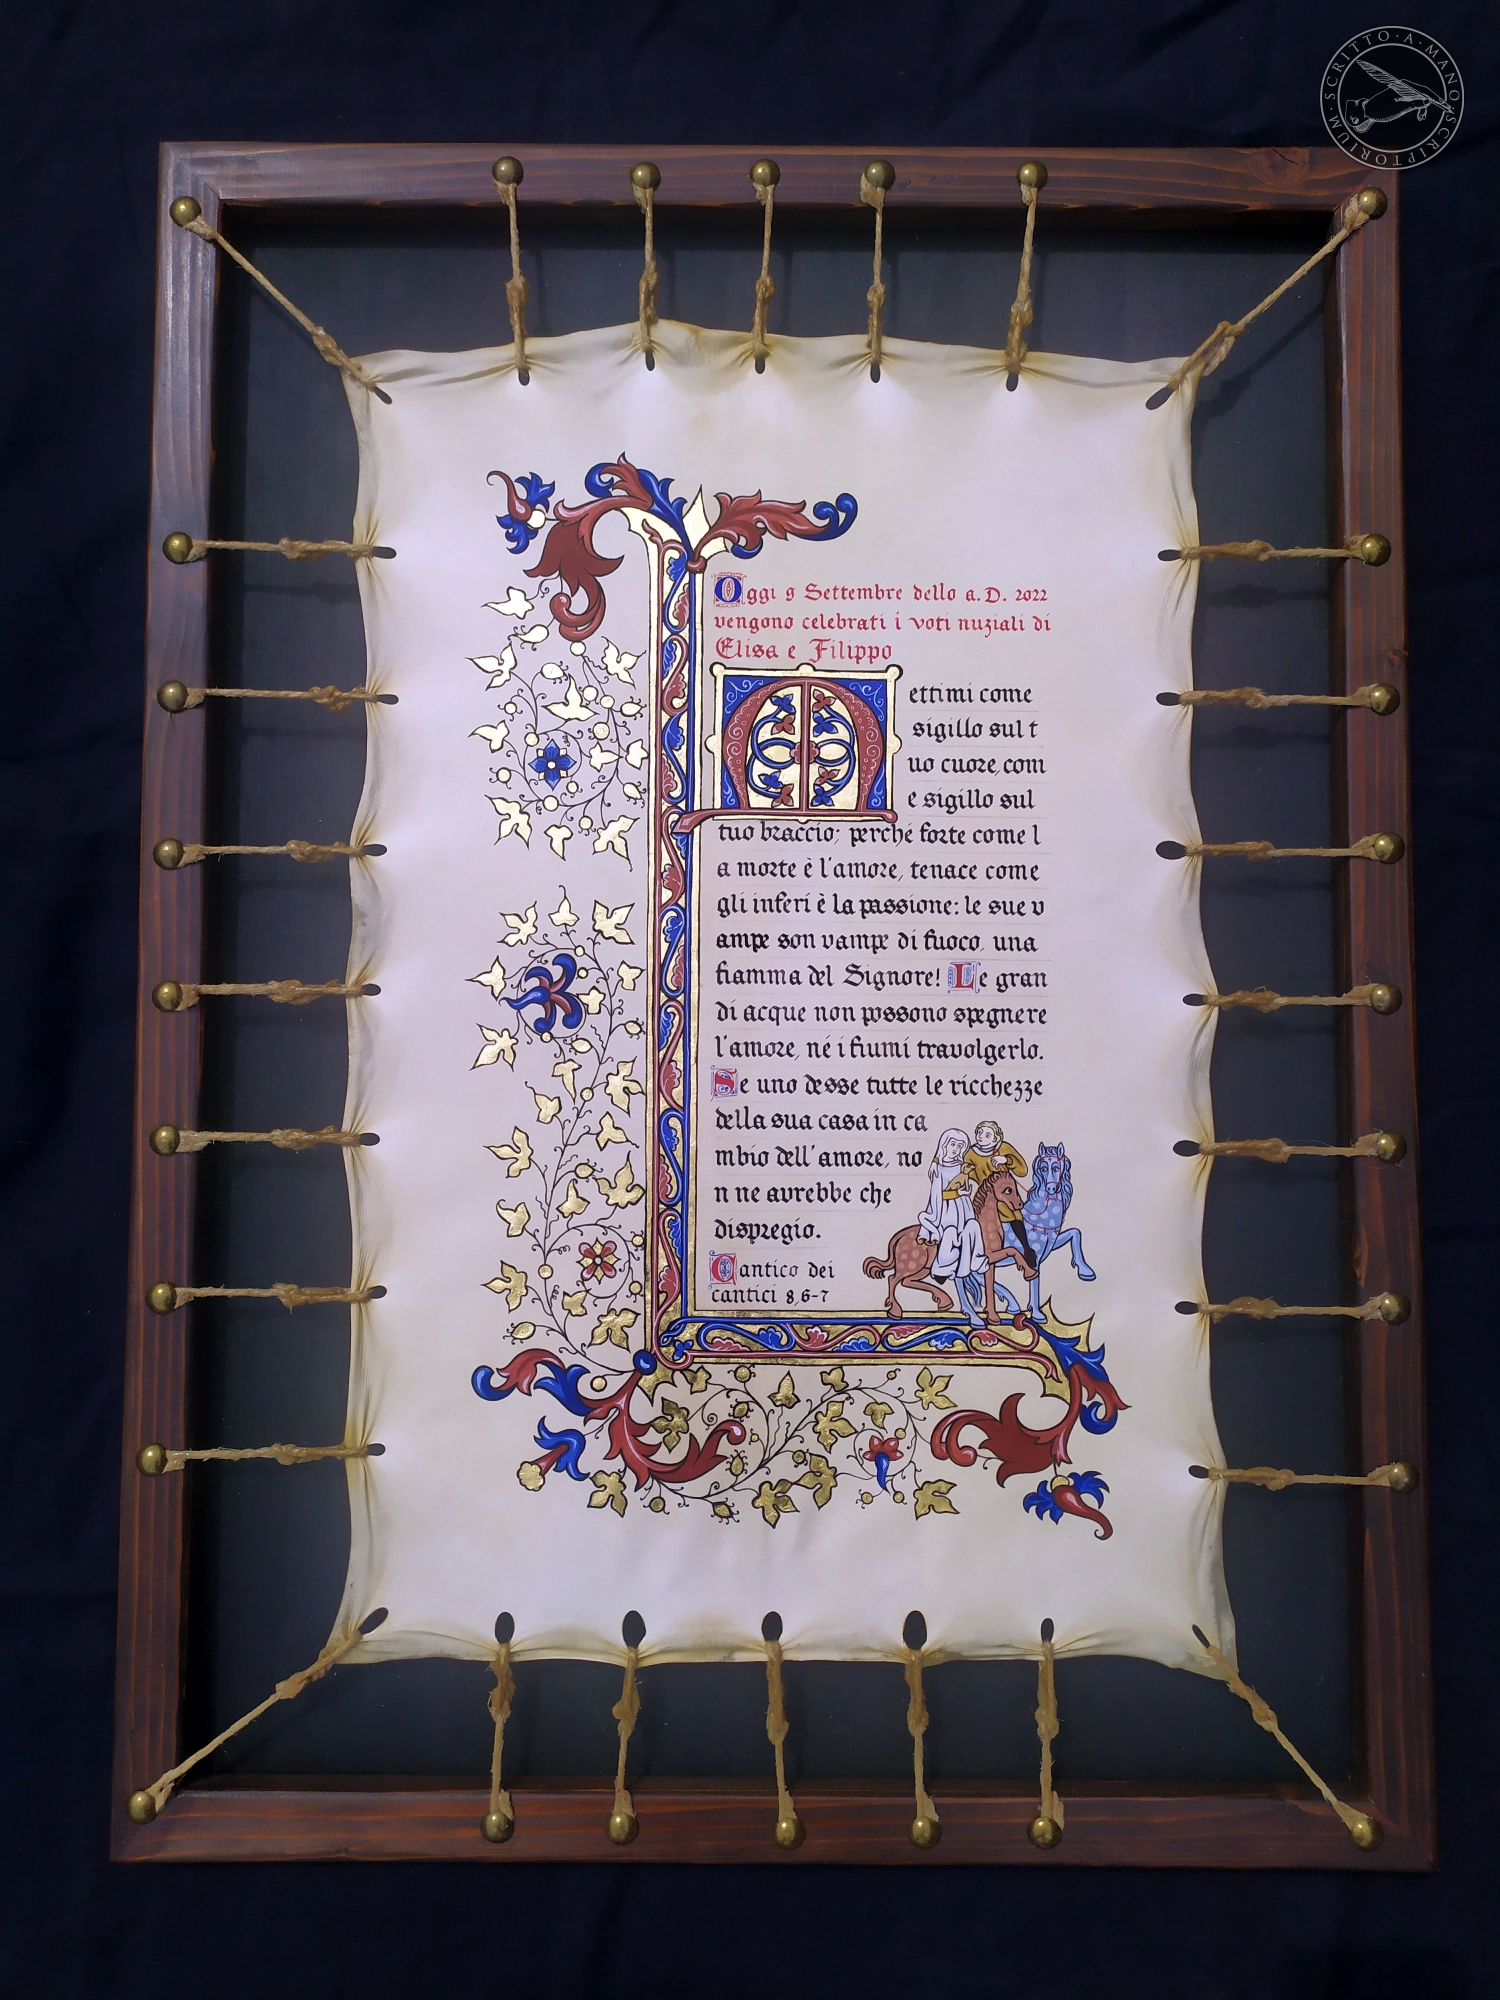 SCRITTO · A · MANO · SCRIPTORIUM ·
Oggi 9 Settembre dello a. D. 2022
vengono celebrati i voti nuziali di
Elisa e Filippo
Mettimi come
sigillo sul t
uo cuore, com
e sigillo sul
tuo braccio; perché forte come l
a morte è l'amore, tenace come
gli inferi è la passione: le sue v
ampe son vampe di fuoco, una
fiamma del Signore! Le gran
di acque non possono spegnere
l'amore, né i fiumi travolgerlo.
Se uno desse tutte le ricchezze
della sua casa in ca
mbio dell'amore, no
n ne avrebbe che
dispregio.
Cantico dei
cantici 8,6-7